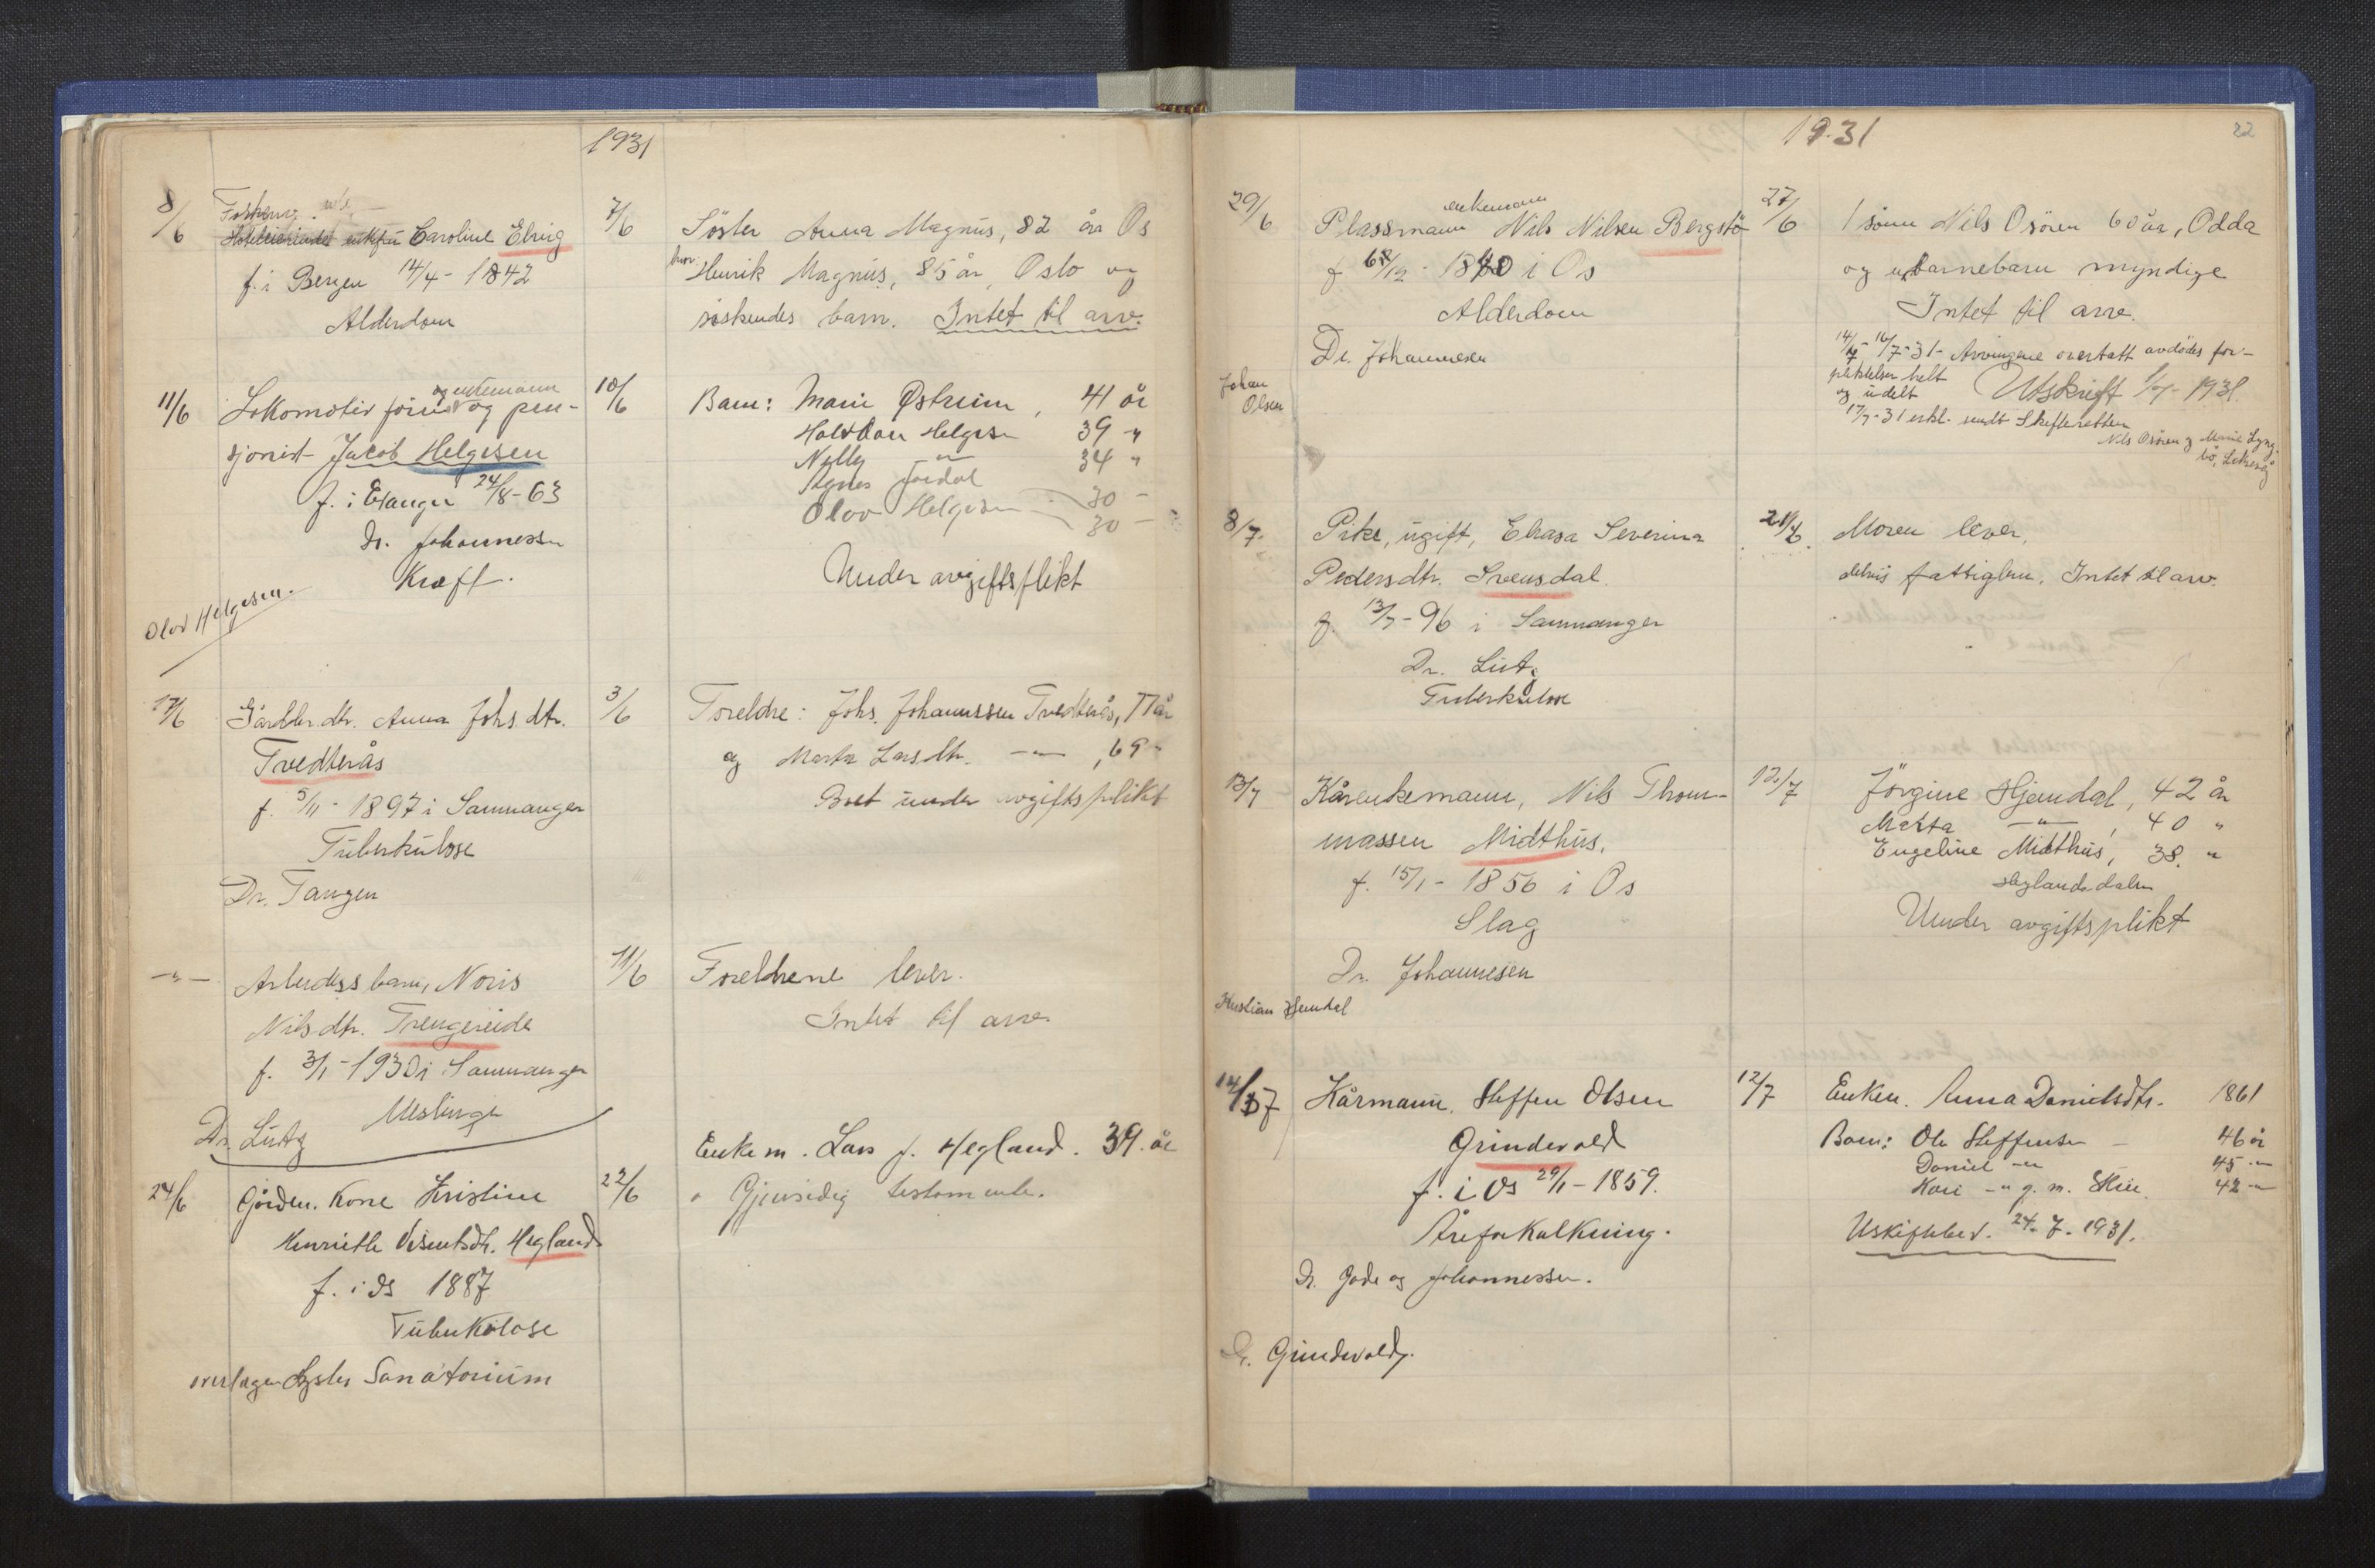 1931
8/6 Caroline Elvig 7/6 Søster Anna Magnus, 82 år Os
f. i Bergen 14/4 - 1842 Henrik Magnus, 85 år, Oslo og
Alderdom søskendes barn. Intet til arv.
11/6 Lokomotivfører og pen- 10/6 Barn: Marie Østreim, 41 år
sjonist Jacob Helgesen Halvdan Helgesen 39 "
f. i Etanger 24/8 - 63 Nelly - " - 34 "
Agnes Jordal 30 -
Dr. Johannessen Olav Helgesen 30 -
Kræft. Under avgiftsplikt
Olav Helgesen.
17/6 Gårdbr. dtr. Anna Johs dtr. 3/6 Foreldre: Johs. Johannssen Tvedterås, 77 år
Tvedterås og Marta Larsdtr. - " -, 69 "
f. 5/11 - 1897 i Samnanger Boet under avgiftsplikt
Tuberkulose
Dr. Tangen
- " - Arbeiders barn, Noris 11/6 Foreldrene lever.
Nilsdtr. Trengereide Intet til arv.
f. 3/1 - 1930 i Samnanger
Meslinge
Dr. Lütz
24/6 Gårdm. kone Kristine 22/6 Enkem. Lars J. Hegland. 39. år
Henriette Hegland Gjensidig testamente.
f. i Os 1887
Tuberkolose
overlægen Lyster Sanatorium
1931 22
29/6 Plassmann enkemann Nils Nilsen Bergstø 27/6 1 sønn Nils Osøren 60 år, Odda
f /12 - 1840 i Os og barnebarn myndige
Alderdom Intet til arv.
Dr. Johannesen 16/7-31 - Arvingene overtatt avdødes for-
Johan pliktelser helt
Olsen og udelt Utskrift 1/7 - 1931.
17/7-31 erkl. sendt Skifteretten
Nils Osøren og Marie Lyng-
bø,
8/7. Pike, ugift, Elvasa Severina 21/6. Moren lever,
Pedersdtr. Svensdal. delvis fattiglem. Intet til arv.
f. 13/7 - 96 i Samnanger
Dr. Lütz
Tuberkulose
13/7 Kårenkemann, Nils Thom- 12/7 Jörgine Hjemdal, 42 år
massen Midthus. Marta - " -, 40 "
f. 15/1 - 1856 i Os Engeline Midthus, 38. "
Slag Heglandsdalen
Under avgiftsplikt
Dr. Johannesen
Kristian Hjemdal
14/7 Kårmann. Steffen Olsen 12/7 Enken. Anna Danielsdtr. 1861
Grindevold Barn: Ole Steffensen - 46 år
f. i Os 29/1 - 1859. Daniel - " 45 - "
Åreforkalkning. Kari - " g. m. 42 - "
Uskiftebev. 24. 7. 1931.
Dr. Gade og Johannessen.
Grindevold.